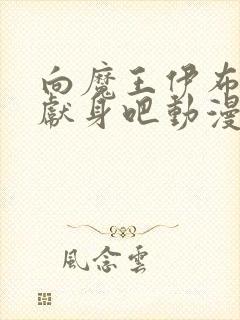 向魔王伊布
獻身吧動漫
風念雲